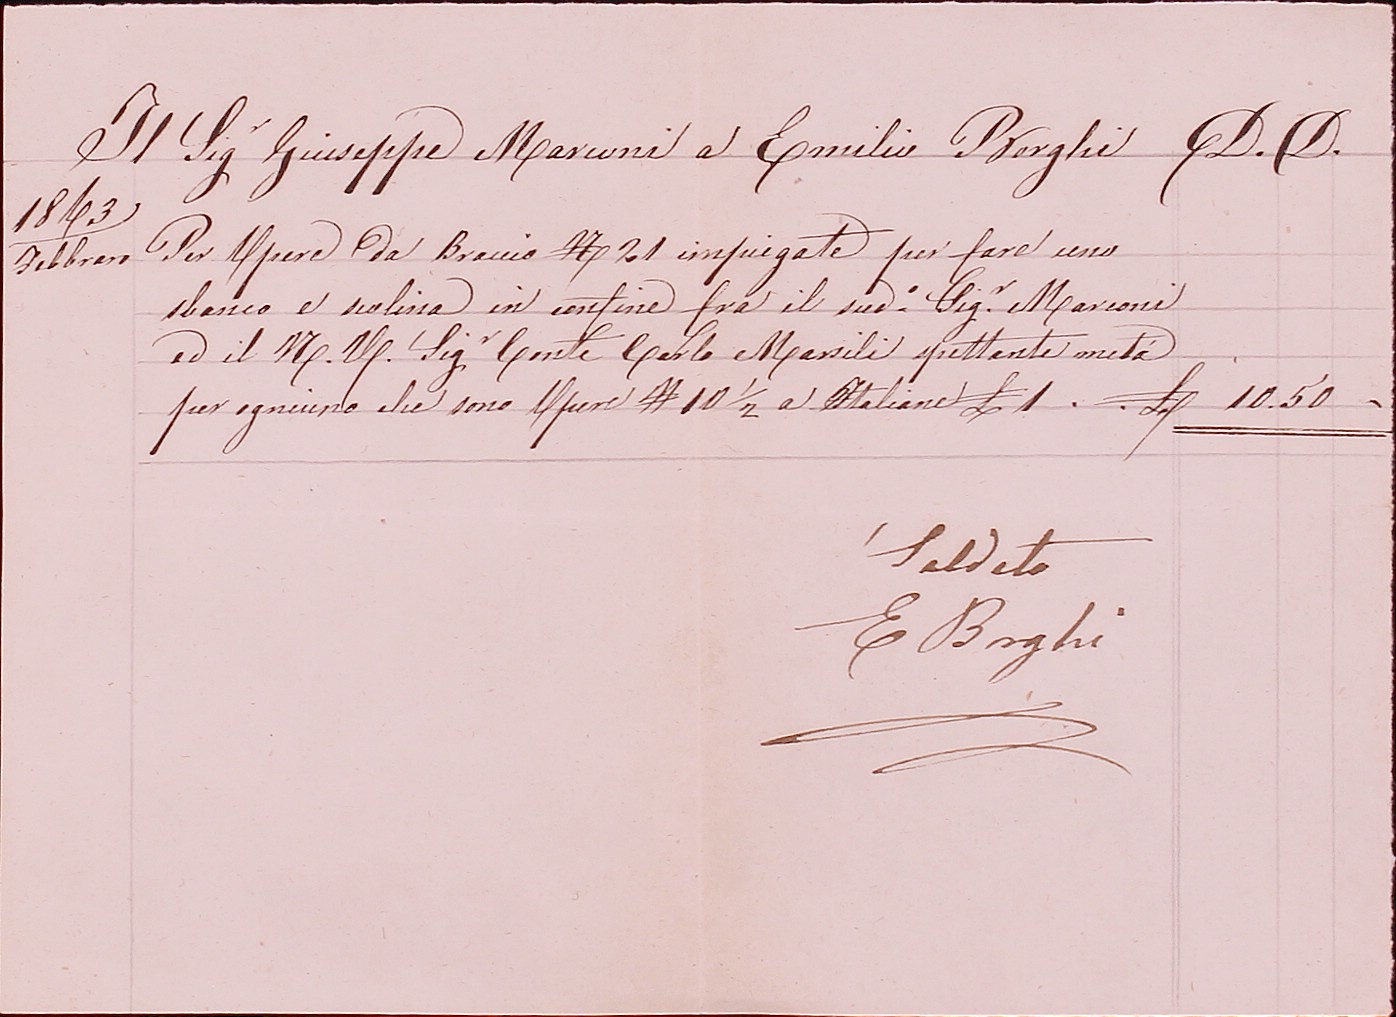 Il Sigr Giuseppe Marconi a Emilio Borghi D. D.
1863
Febbraro
Per Opere da Braccio N 21 impiegate per fare uno
sbanco e scolina in confine fra il sudo. Sigr. Marconi
ed il N. U. Sigr Conte Carlo Marsili spettante metà
per ogniuno che sono Opere N 10 1/2 a Italiane £ 1 . . £ 10.50 -
Saldato
E Borghi